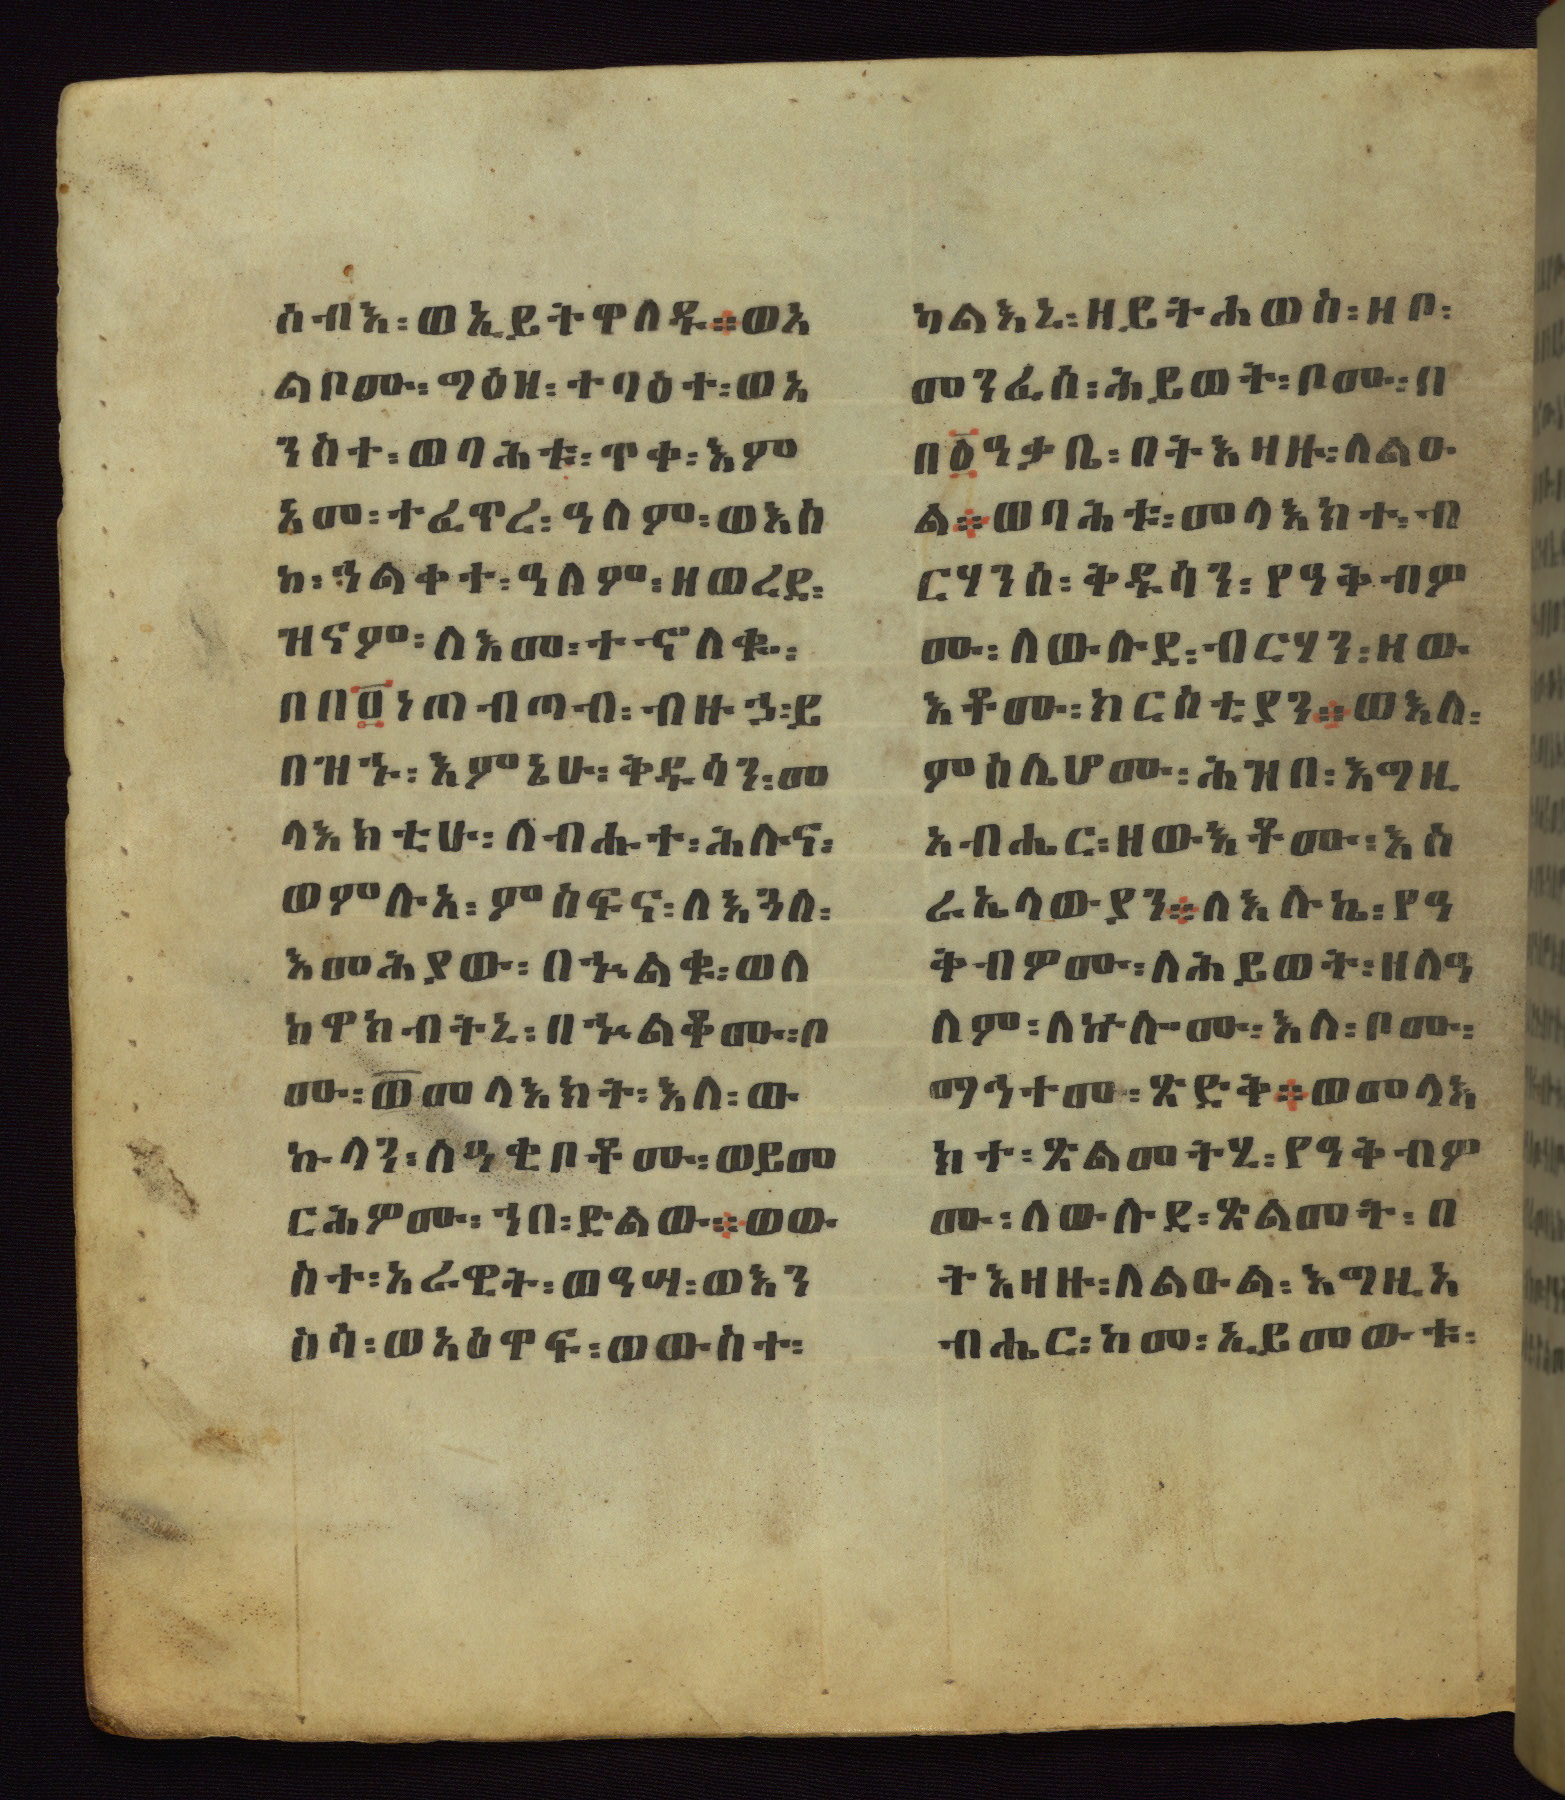 ስብእ፡ወኢይትዋለዱ።ወአ
ልቦሙ፡ግዕዘ፡ተባዕተ፡ወአ
ንስተ፡ወባሕቱ፡ጥቀ፡እም
አመ፡ተፈጥረ፡ዓለም፡ወእስ
ከ፡ኀልቀተ፡ዓለም፡ዘወረደ፡
ዝናም፡ለእመ፡ተኆለቁ፡
በበ፩ነጠብጣብ፡ብዙኃ፡ይ
በዝኁ፡እምኔሁ፡ቅዱሳን፡መ
ላእክቲሁ፡ለብሑተ፡ሕሉና፡
ወምሉአ፡ምስፍና፡ለእጓለ፡
እመሕያው፡በኍልቁ፡ወለ
ከዋክብትኒ፡በኍልቆሙ፡ቦ
ሙ፡ወመላእክት፡እለ፡ው
ኩላን፡ለዓቂቦቶሙ፡ወይመ
ርሕዎሙ፡ኀበ፡ድልው።ወው
ስተ፡አራዊት፡ወዓሣ፡ወእን
ስሳ፡ወአዕዋፍ፡ወውስተ፡
ካልእኒ፡ዘይትሐወስ፡ዘቦ፡
መንፈሰ፡ሕይወት፡ቦሙ፡በ
በ፩ዓቃቤ፡በትእዛዙ፡ለልዑ
ል።ወባሕቱ፡መላእክተ፡ብ
ርሃንሰ፡ቅዱሳን፡የዓቅብም
ሙ፡ለውሉደ፡ብርሃን፡ዘው
እቶሙ፡ክርስቲያን።ወእለ፡
ምስሌሆሙ፡ሕዝበ፡እግዚ
አብሔር፡ዘውእቶሙ፡እስ
ራኤላውያን።ለእሉኬ፡የዓ
ቅብዎሙ፡ለሕይወት፡ዘለዓ
ለም፡ለኵሎሙ፡እለ፡ቦሙ፡
ማኅተመ፡ጽድቅ።ወመላእ
ክተ፡ጽልመትሂ፡የዓቅብም
ሙ፡ለውሉደ፡ጽልመት፡በ
ትእዛዙ፡ለልዑል፡እግዚአ
ብሔር፡ከመ፡ኢይመውቱ፡